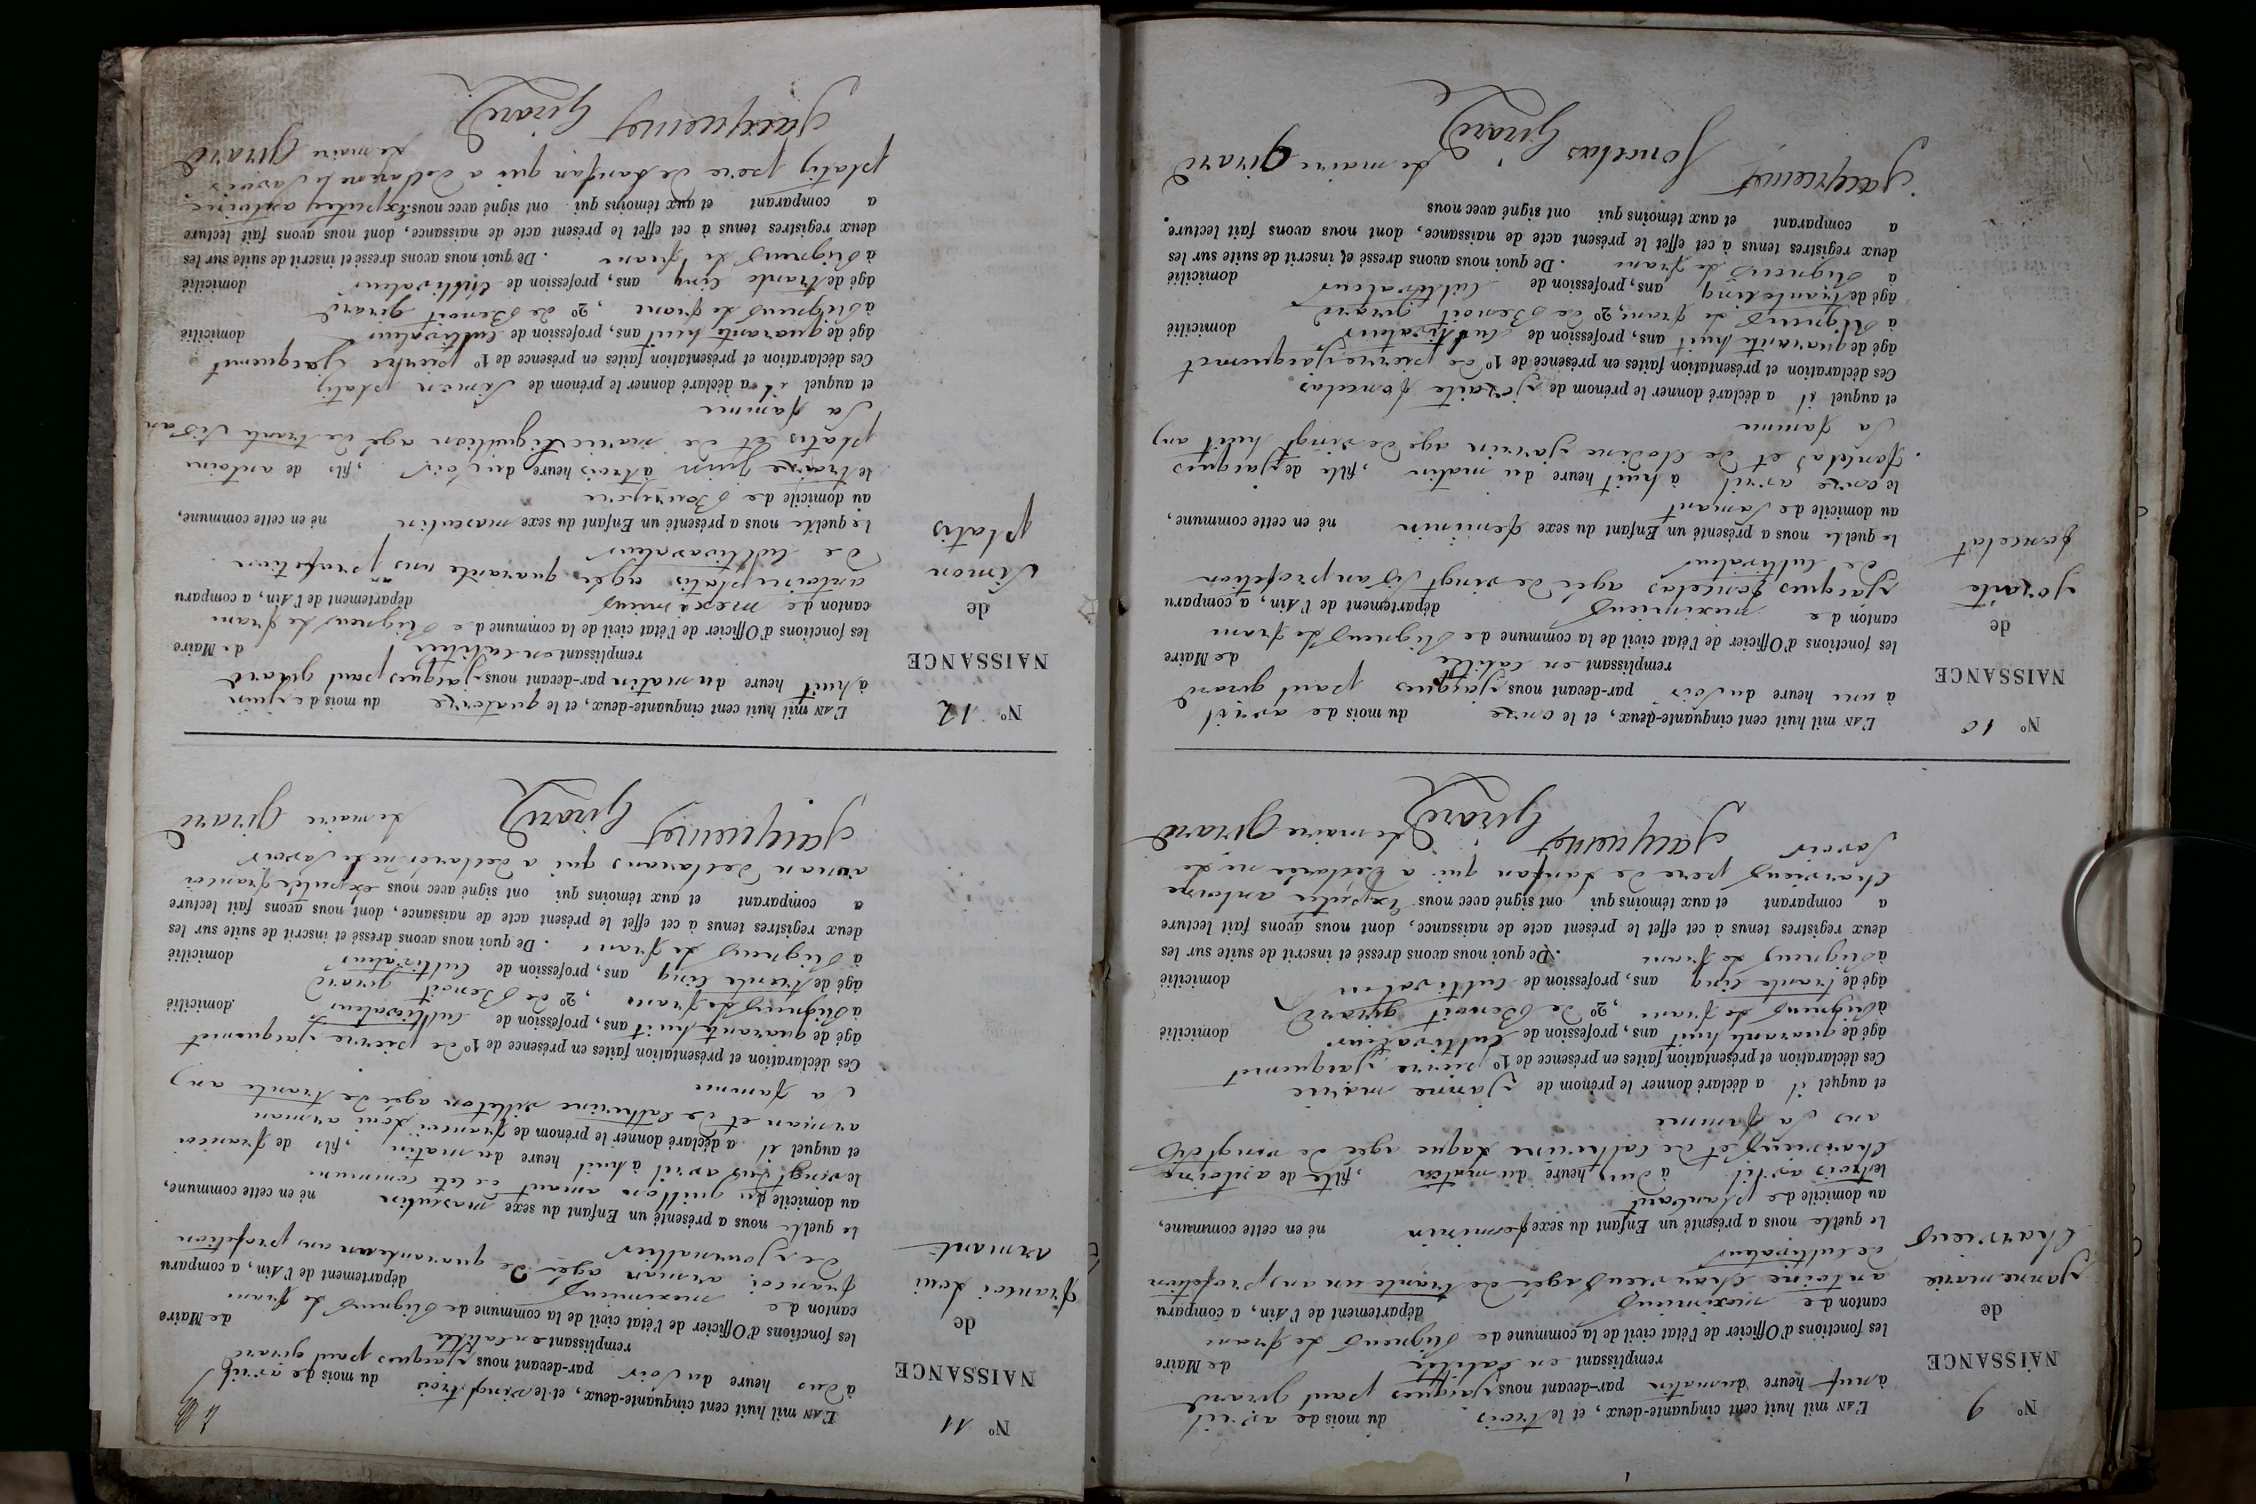 N° 9
NAISSANCE
de
Janne marie
Charvieus
L'AN mil huit cent cinquante-deux, et le trois du mois de avril
à neuf heure du matin par-devant nous Jacques paul girard
remplissant en calitée de Maire
les fonctions d'Officier de l'état civil de la commune de Rignieus le franc
canton de meximieus département de l'Ain, a comparu
antoine Charvieus agée de trante un ans profetion
de Cultivateur
lequelle nous a présenté un Enfant du sexe feminin né en cette commune,
au domicile de
le trois avril à deus heure du matin, fille de antoine
Charvieus et de Catherine agée de vingt
ans Sa famme
et auquel il a déclaré donner le prénom de Janne marie
Ces déclaration et présentation faites en présence de 1° de pierre Jacquemet
âgé de quarante huit ans, profession de Cultivateur domicilié
à Rignieus le franc, 2° de Benoit girard
âgé de trante cinq ans, profession de Cultivateur domicilié
à Rignieus le franc. De quoi nous avons dressé et inscrit de suite sur les
deux registres tenus à cet effet le présent acte de naissance, dont nous avons fait lecture
a comparant et aux témoins qui ont signé avec nous Exeptée antoine
Charvieus pere de Lanfan qui a déclarée ne le
Savoir
Jacquemet Girard Le maire Girard
N° 10
NAISSANCE
de
Joncelat
L'AN mil huit cent cinquante-deux, et le onze du mois de avril
à une heure du Soir par-devant nous Jacques paul girard
remplissant en calitée de Maire
les fonctions d'Officier de l'état civil de la commune de Rignieus le franc
canton de meximieus département de l'Ain, a comparu
Jacques Joncelas agée de vingt Sis an profetion
de Cultivateur
lequelle nous a présenté un Enfant du sexe feminin né en cette commune,
au domicile de Samant
le onze avril à huit heure du matin, fille de Jacques
Joncelas et de Clodine Jarrin agée de vingt huit ans
Sa famme
et auquel il a déclaré donner le prénom de Joncelas
Ces déclaration et présentation faites en présence de 1° de pierre Jacquemet
âgé de quarante huit ans, profession de Cultivateur domicilié
à Rignieus le franc, 2° de Benoit girard
âgé de trante cinq ans, profession de Cultivateur domicilié
a Rignieus le franc. De quoi nous avons dressé et inscrit de suite sur les
deux registres tenus à cet effet le présent acte de naissance, dont nous avons fait lecture
a comparant et aux témoins qui ont signé avec nous
Jacquemet Joncelas Girard Le maire Girard
N° 11
NAISSANCE
de
francoi Loui
armant
L'AN mil huit cent cinquante-deux, et le vingt trois du mois de avril
à deus heure du Soir par-devant nous Jacques paul girard
remplissant en calitée de Maire
les fonctions d'Officier de l'état civil de la commune de Rignieus le franc
canton de meximieus département de l'Ain, a comparu
francoi arman agée de quarante un an profetion
de Journallier
lequelle nous a présenté un Enfant du sexe masculin né en cette commune,
au domicile du guillon amant en cete commune
le vingt trois avril à huit heure du matin, fils de francoi
et auquel il a déclaré donner le prénom de francoi Loui arman
arman et de Catherine agée de trante ans
Sa famme
Ces déclaration et présentation faites en présence de 1° de pierre Jacquemet
âgé de quarante huit ans, profession de Cultivateur domicilié
à Rignieus le franc, 2° de Benoit girard
âgé de trante cinq ans, profession de Cultivateur domicilié
à Rignieus le franc. De quoi nous avons dressé et inscrit de suite sur les
deux registres tenus à cet effet le présent acte de naissance, dont nous avons fait lecture
a comparant et aux témoins qui ont signé avec nous exeptée francoi
arman declarans qui a declarée ne le Savoir
Jacquemet Girard Le maire Girard
N° 12
NAISSANCE
de
Simon
platis
L'AN mil huit cent cinquante-deux, et le quatorze du mois de juin
à huit heure du matin par-devant nous Jacques paul girard
remplissant en calitée de Maire
les fonctions d'Officier de l'état civil de la commune de Rignieus le franc
canton de meximieus département de l'Ain, a comparu
antoine platis agée quarante ans profetion
de Cultivateur
lequelle nous a présenté un Enfant du sexe masculin né en cette commune,
au domicile de
le traize Juin à trois heure du Soir, fils de antoine
platis et de marie guillion agé de trante Sis an
Sa famme
et auquel il a déclaré donner le prénom de Simon platis
Ces déclaration et présentation faites en présence de 1° pierre Jacquemet
âgé de quarante huit ans, profession de Cultivateur domicilié
à Rignieus le franc, 2° de Benoit girard
âgé de trante cinq ans, profession de Cultivateur domicilié
à Rignieus le franc. De quoi nous avons dressé et inscrit de suite sur les
deux registres tenus à cet effet le présent acte de naissance, dont nous avons fait lecture
a comparant et aux témoins qui ont signé avec nous Exeptée antoine
platis pere de Lanfan qui a déclarée ne le Savoir
Jacquemet Girard Le maire Girard